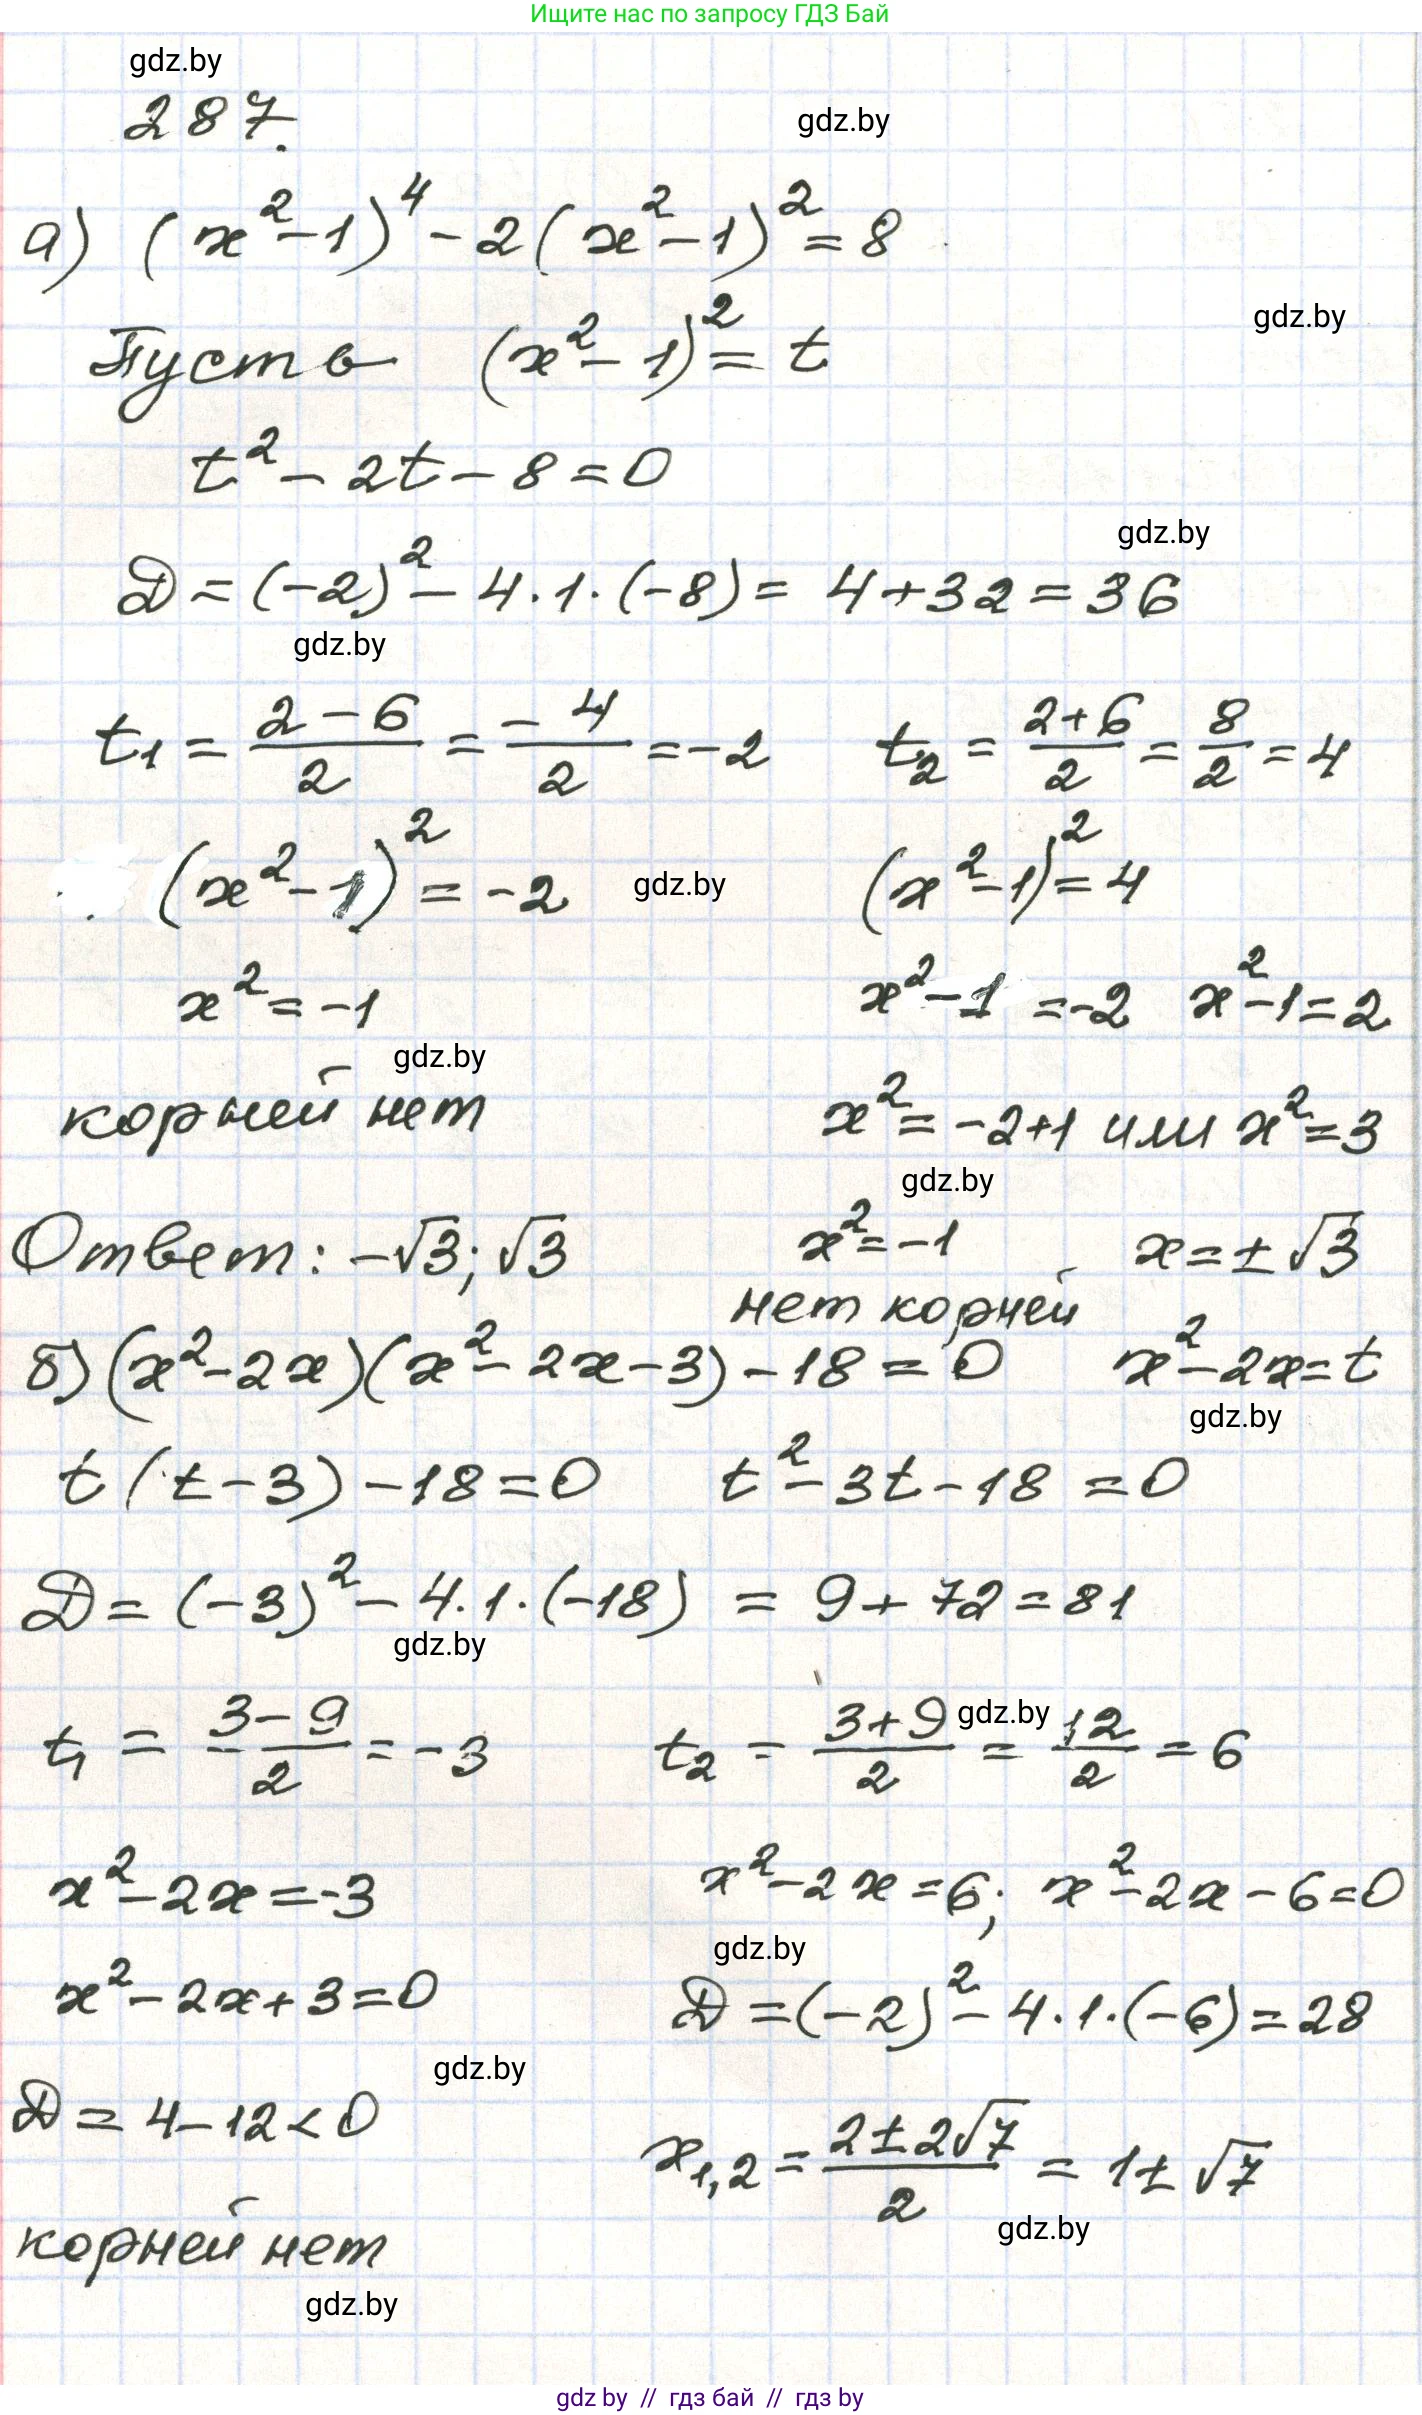 Ищите нас по запросу ГДЗ Бай
gdz.by
287.
gdz.by
а) (x²-1)⁴ - 2(x²-1)² = 8
gdz.by
Пусть (x²-1)² = t
t² - 2t - 8 = 0
gdz.by
Д = (-2)² - 4·1·(-8) = 4+32 = 36
gdz.by
t₁ = (2-6)/2 = -4/2 = -2 t₂ = (2+6)/2 = 8/2 = 4
(x²-1)² = -2 gdz.by (x²-1)² = 4
x² = -1 x²-1 = -2 x²-1 = 2
gdz.by
корней нет x² = -2+1 или x² = 3
gdz.by
Ответ: -√3; √3 x² = -1 x = ±√3
нет корней
б) (x²-2x)(x²-2x-3) - 18 = 0 x²-2x = t
gdz.by
t(t-3) - 18 = 0 t² - 3t - 18 = 0
Д = (-3)² - 4·1·(-18) = 9+72 = 81
gdz.by
t₁ = (3-9)/2 = -3 t₂ = (3+9)/2 = 12/2 = 6
gdz.by
x²-2x = -3 x²-2x = 6; x²-2x-6 = 0
gdz.by
x²-2x+3 = 0 Д = (-2)² - 4·1·(-6) = 28
gdz.by
Д = 4-12 < 0 x₁,₂ = (2±2√7)/2 = 1±√7
gdz.by
корней нет
gdz.by
gdz by // гдз бай // гдз by